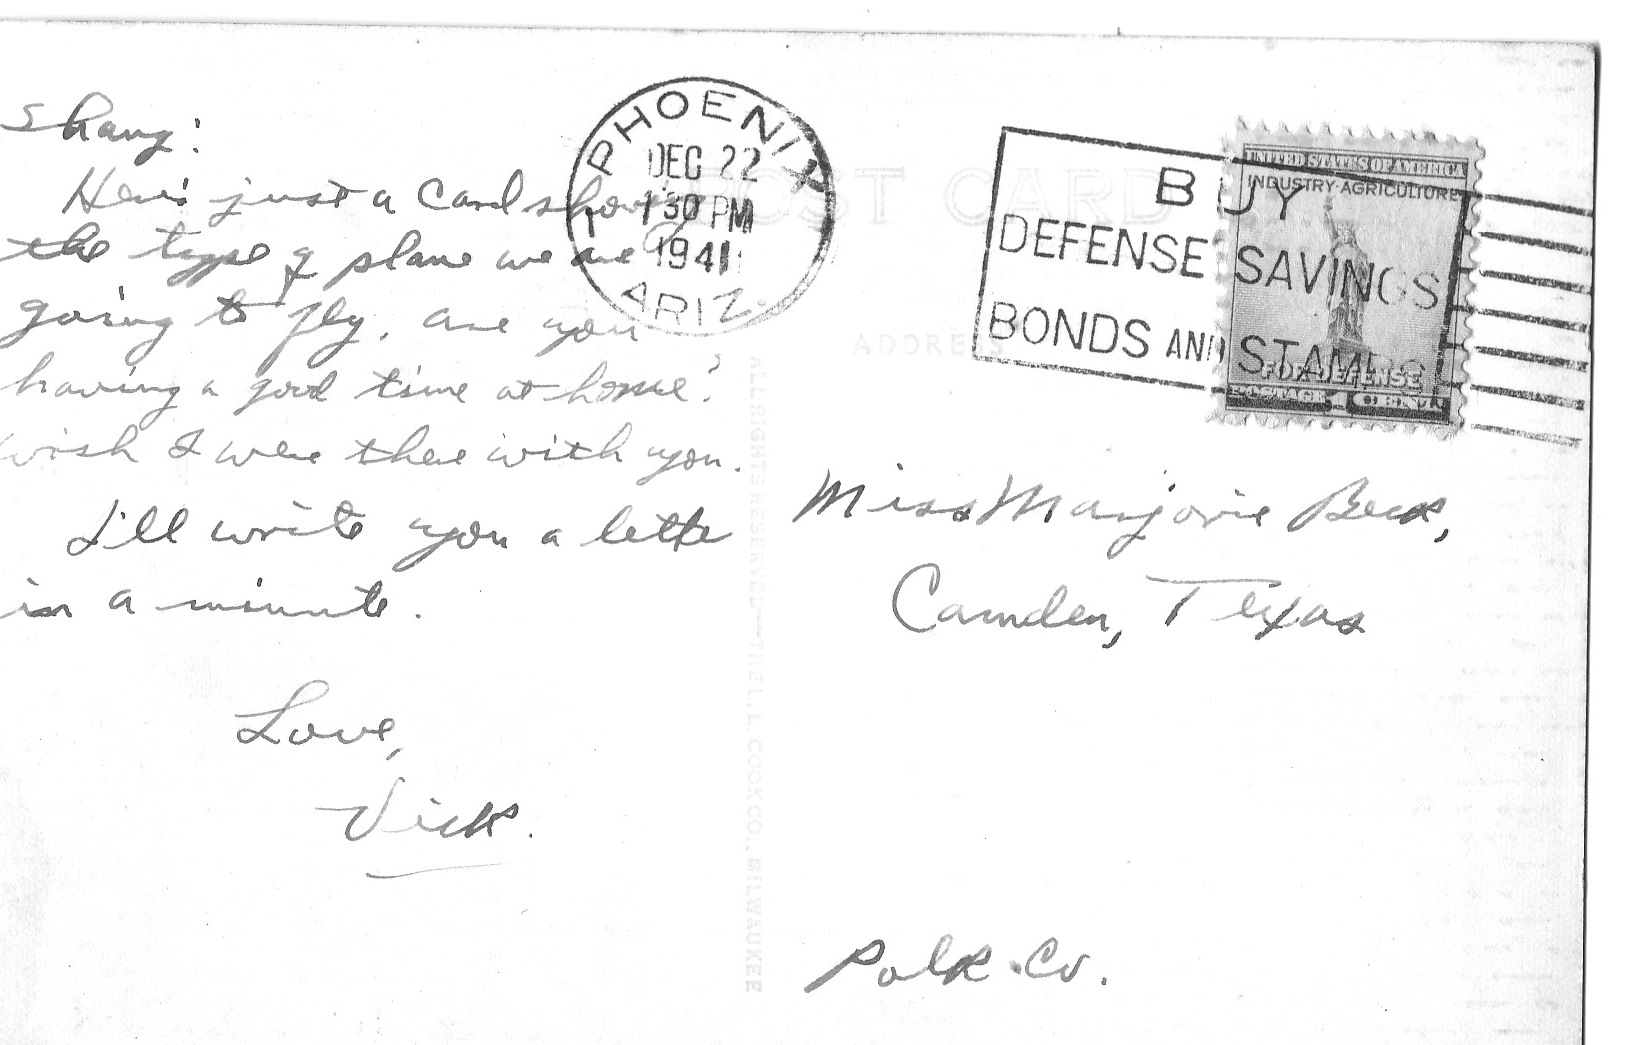 Shang:
Here's just a card showing
the type of plane we are
going to fly. are you
having a good time at home?
wish I were there with you.
I'll write you a lette
in a minute.
Love,
Vick.
PHOENIX
DEC 22
1 30 PM
1941
ARIZ.
POST CARD
ADDRESS
BUY
DEFENSE SAVINGS
BONDS AND STAMPS
UNITED STATES OF AMERICA
INDUSTRY·AGRICULTURE
FOR DEFENSE
POSTAGE 1 CENT
Miss Marjorie
Camden, Texas
Polk Co.
ALL RIGHTS RESERVED—THE L. L. COOK CO., MILWAUKEE